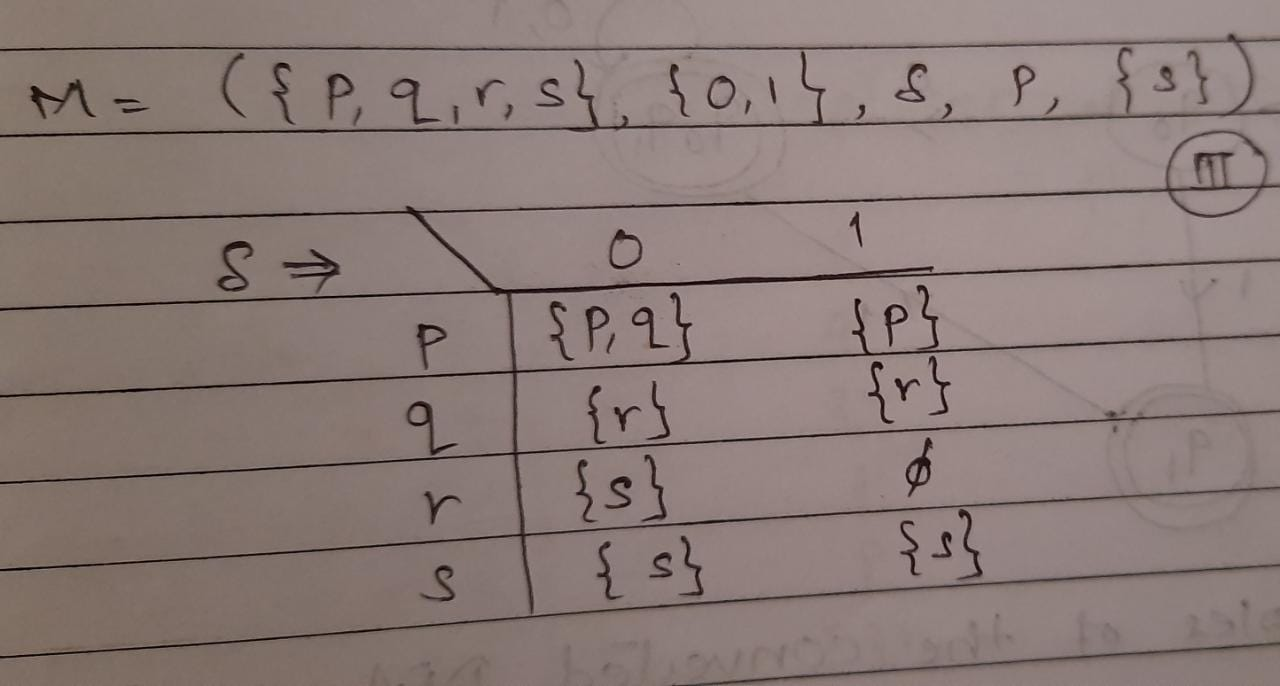 M = ({p, q, r, s}, {0, 1}, δ, p, {s})
III
δ ⇒ 0 1
p {p, q} {p}
q {r} {r}
r {s} ϕ
s {s} {s}